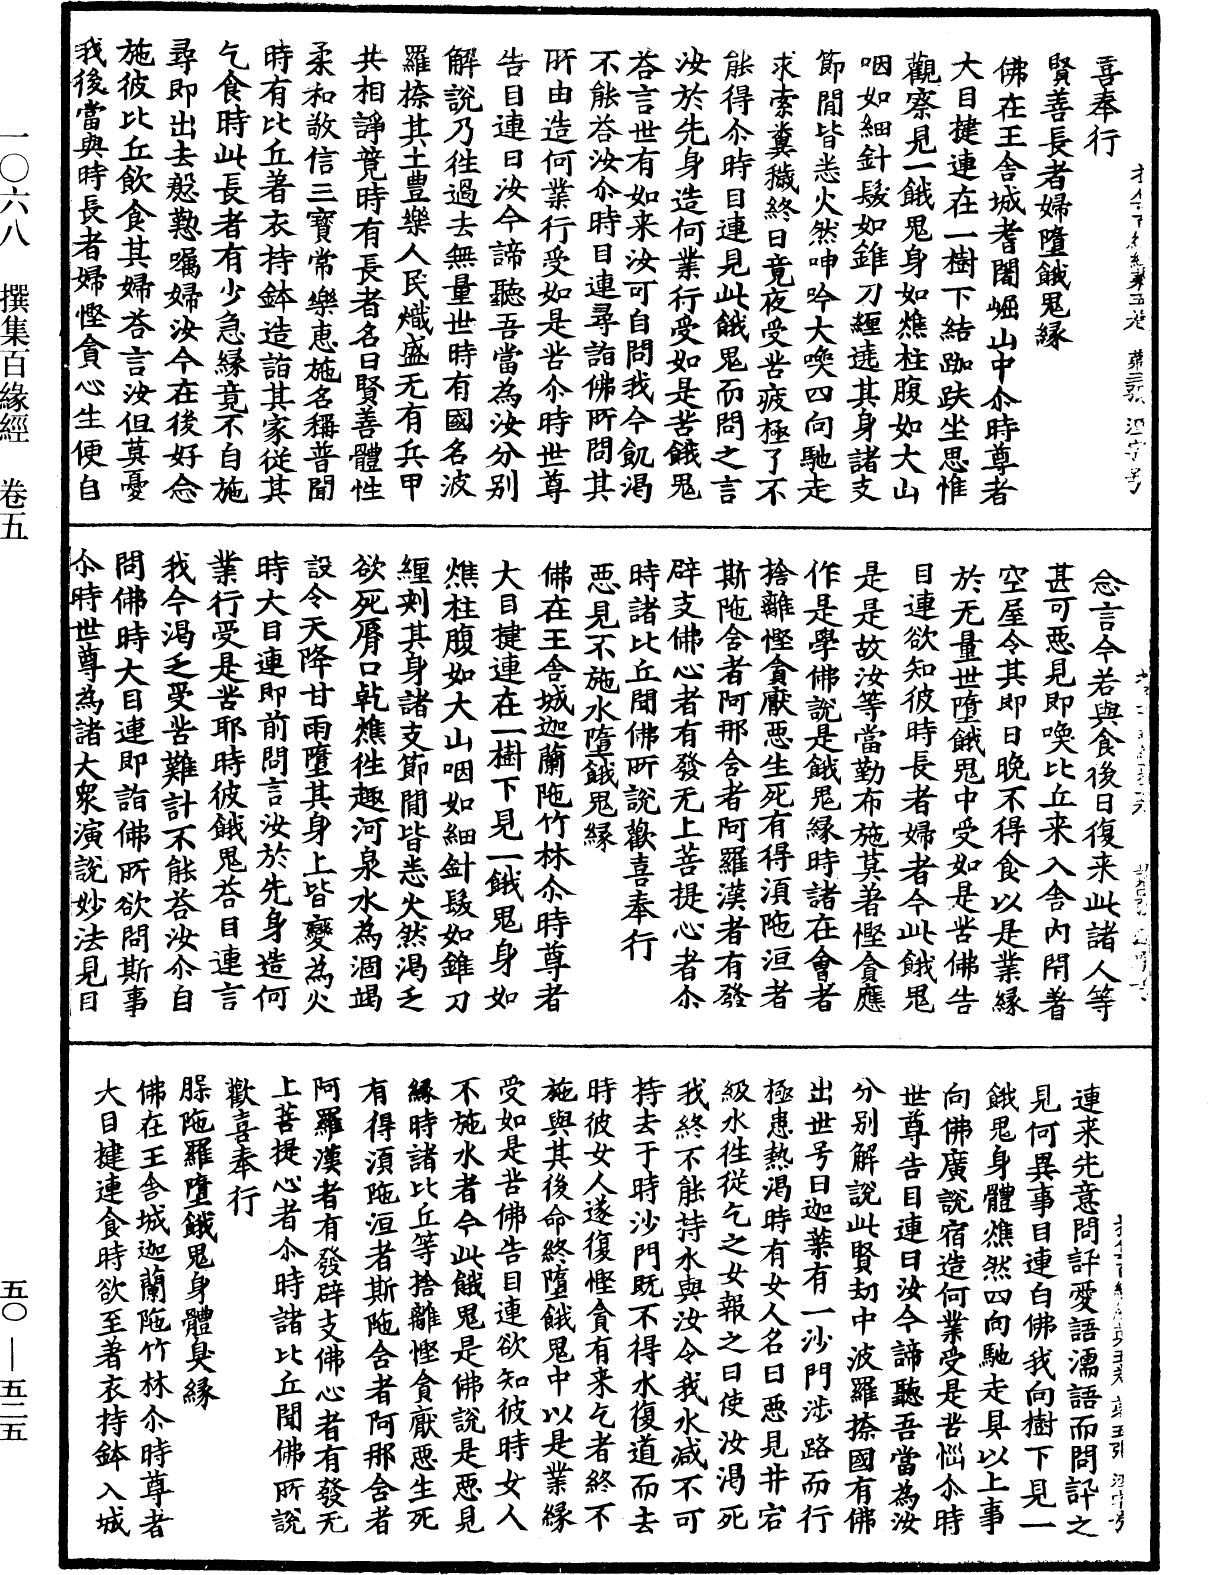 喜奉行
賢善長者婦墮餓鬼緣
佛在王舍城耆闍崛山中尒時尊者
大目揵連在一樹下結跏趺坐思惟
觀察見一餓鬼身如燋柱腹如大山
咽如細針髮如錐刀纏遶其身諸支
節閒皆悉火然呻吟大喚四向馳走
求索糞穢終日竟夜受苦疲極了不
能得尒時目連見此餓鬼而問之言
汝於先身造何業行受如是苦餓鬼
荅言世有如来汝可自問我今飢渴
不能荅汝尒時目連尋詣佛所問其
所由造何業行受如是苦尒時世尊
告目連曰汝今諦聽吾當為汝分別
解說乃徃過去無量世時有國名波
羅捺其土豊樂人民熾盛无有兵甲
共相諍競時有長者名曰賢善體性
柔和敬信三寳常樂惠施名稱普聞
時有比丘著衣持鉢造詣其家従其
乞食時此長者有少急緣竟不自施
尋即出去慇懃囑婦汝今在後好念
施彼比丘飲食其婦荅言汝但莫憂
我後當與時長者婦慳貪心生便自
念言今若與食後日復来此諸人等
甚可惡見即喚比丘来入舍内閇著
空屋令其即日晚不得食以是業緣
於无量世墮餓鬼中受如是苦佛告
目連欲知彼時長者婦者今此餓鬼
是是故汝等當勤布施莫著慳貪應
作是學佛說是餓鬼緣時諸在會者
捨離慳貪厭惡生死有得湏陁洹者
斯陁含者阿那含者阿羅漢者有發
辟支佛心者有發无上菩提心者尒
時諸比丘聞佛所說歡喜奉行
惡見不施水墮餓鬼緣
佛在王舍城迦蘭陁竹林尒時尊者
大目揵連在一樹下見一餓鬼身如
燋柱腹如大山咽如細針髮如錐刀
纏刾其身諸支節閒皆悉火然渴乏
欲死脣口乹燋徃趣河泉水為涸竭
設令天降甘雨墮其身上皆變為火
時大目連即前問言汝於先身造何
業行受是苦耶時彼餓鬼荅目連言
我今渴乏受苦難計不能荅汝尒自
問佛時大目連即詣佛所欲問斯事
尒時世尊為諸大衆演說妙法見目
連来先意問訊愛語濡語而問訊之
見何異事目連白佛我向樹下見一
餓鬼身體燋然四向馳走具以上事
向佛廣說宿造何業受是苦惱尒時
世尊告目連曰汝今諦聽吾當為汝
分別解說此賢劫中波羅捺國有佛
出世号曰迦葉有一沙門涉路而行
極患熱渴時有女人名曰惡見井宕
級水徃従乞之女報之曰使汝渴死
我終不能持水與汝令我水減不可
持去于時沙門既不得水復道而去
時彼女人遂復慳貪有来乞者終不
施與其後命終墮餓鬼中以是業緣
受如是苦佛告目連欲知彼時女人
不施水者今此餓鬼是佛說是惡見
緣時諸比丘等捨離慳貪厭惡生死
有得湏陁洹者斯陁含者阿那含者
阿羅漢者有發辟支佛心者有發无
上菩提心者尒時諸比丘聞佛所說
歡喜奉行
䏲陁羅墮餓鬼身體臭緣
佛在王舍城迦蘭陁竹林尒時尊者
大目揵連食時欲至著衣持鉢入城
一〇六八 撰集百緣經 卷五
五〇—五二五